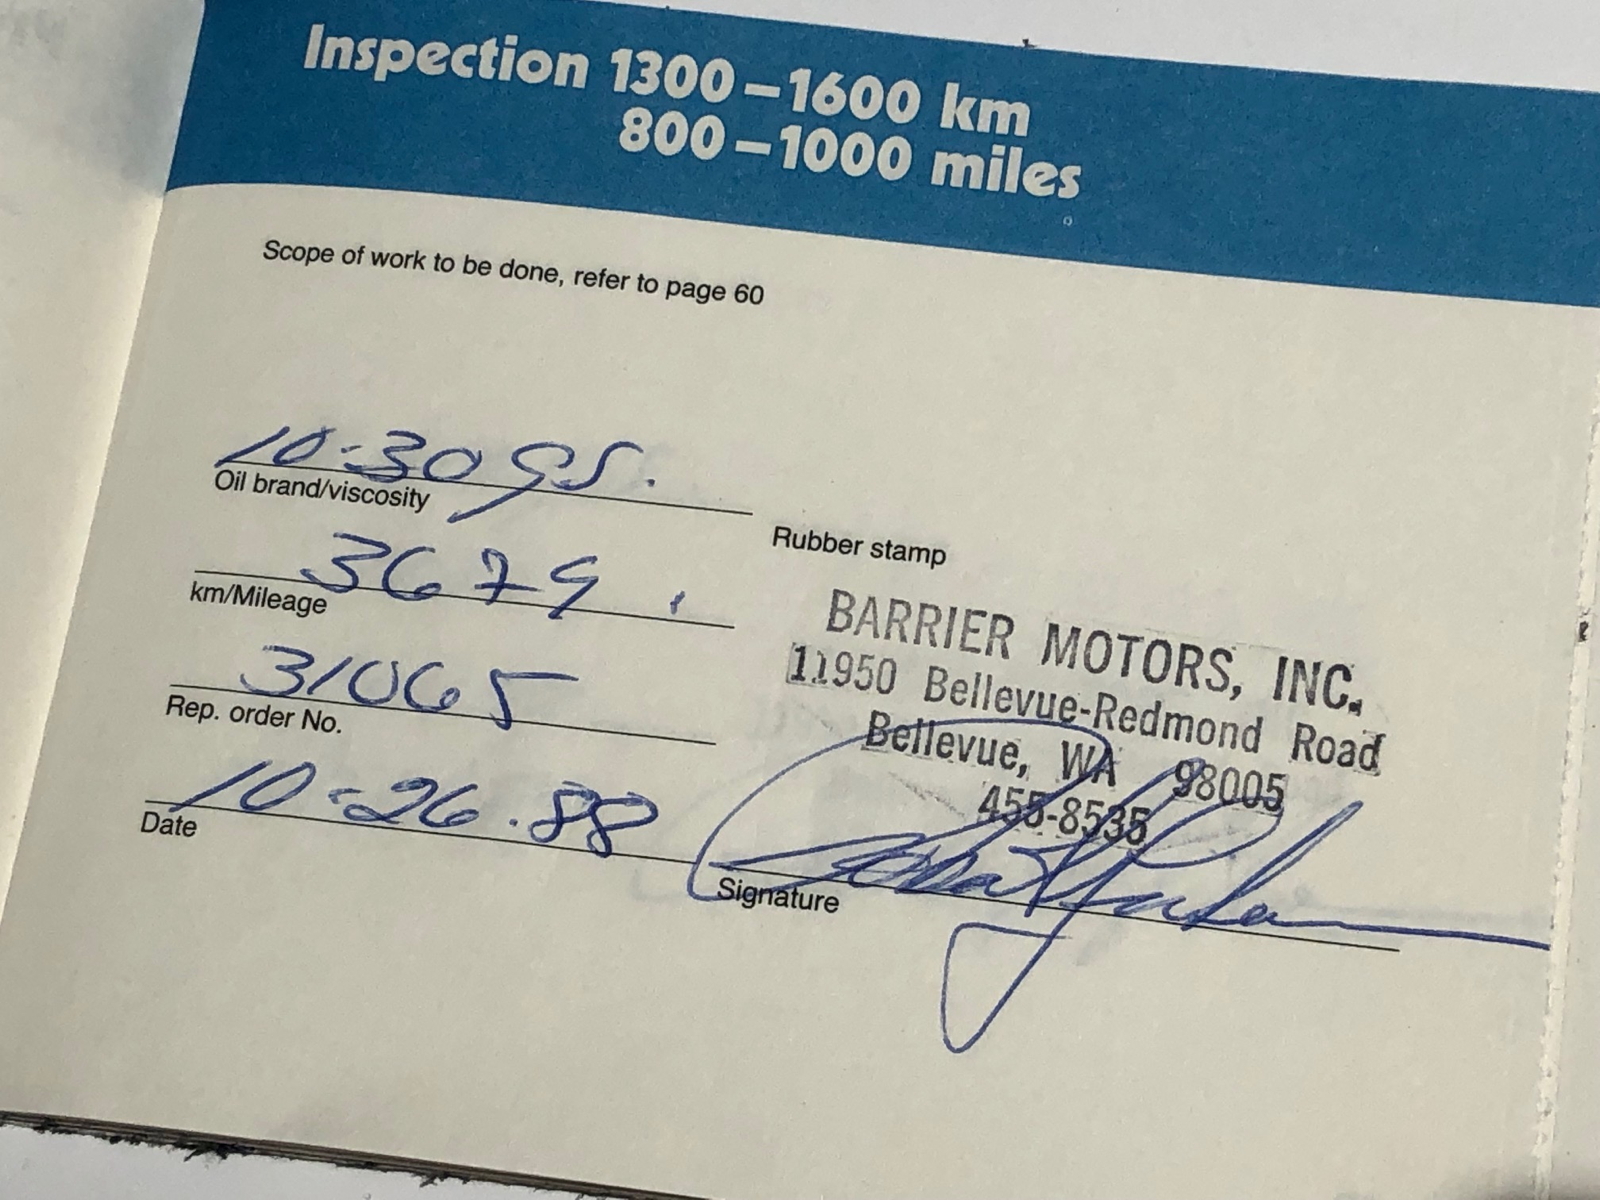 Inspection 1300–1600 km
800–1000 miles
Scope of work to be done, refer to page 60
10-30
Oil brand/viscosity
3679
km/Mileage
31065
Rep. order No.
10-26.88
Date
Rubber stamp
BARRIER MOTORS, INC.
11950 Bellevue-Redmond Road
Bellevue, WA 98005
455-8535
Signature